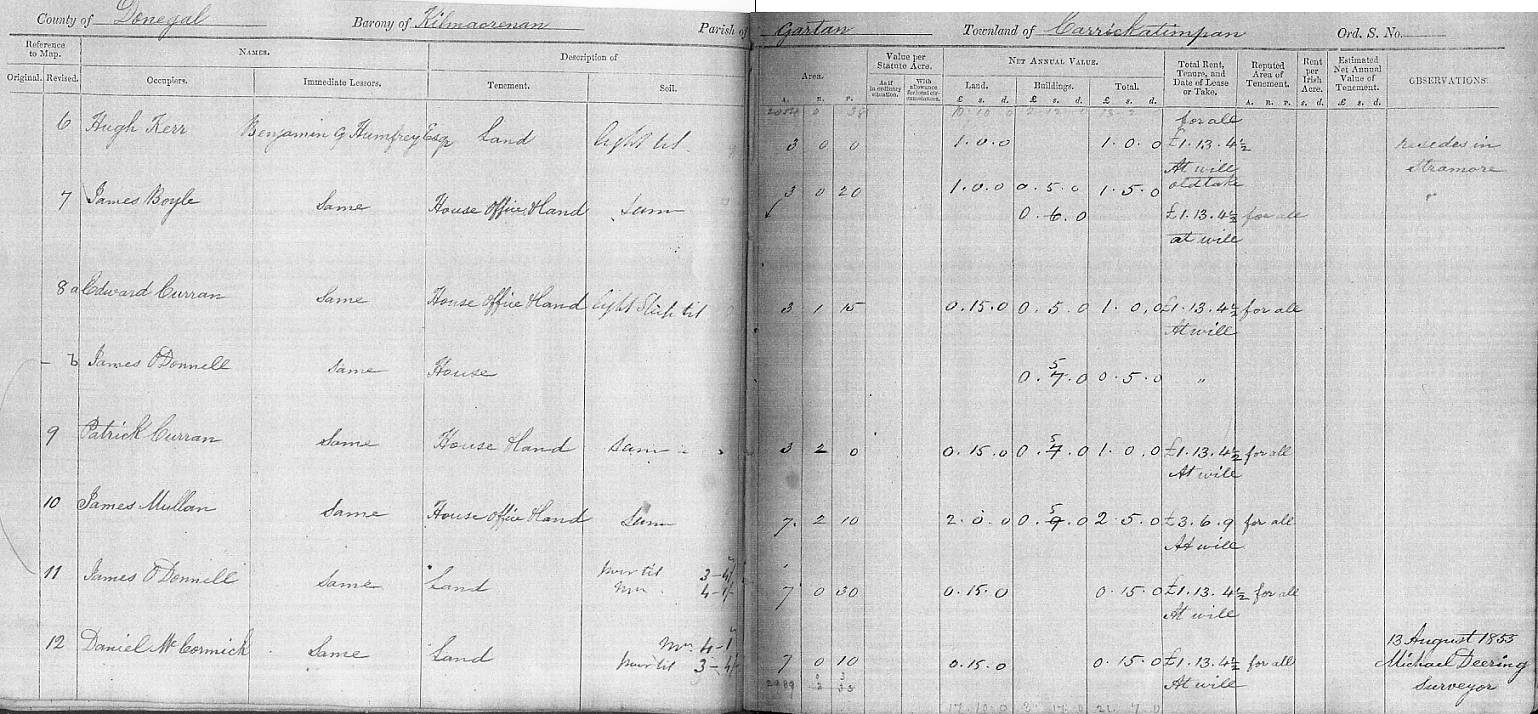 County of Donegal Barony of Kilmacrenan Parish of Gartan Townland of Carrickatimpan Ord. S. No.
Reference to Map. NAMES. Description of Area. Value per Statute Acre. NET ANNUAL VALUE. Total Rent, Tenure, and Date of Lease or Take. Reputed Area of Tenement. Rent per Irish Acre. Estimated Net Annual Value of Tenement. OBSERVATIONS.
Original. Revised. Occupiers. Immediate Lessors. Tenement. Soil. As if in ordinary situation. With allowance for local circumstances. Land. Buildings. Total.
A. R. P. £ s. d. £ s. d. £ s. d. A. R. P. s. d. £ s. d.
for all
6 Hugh Kerr Benjamin G Humfrey Esq Land light til 3 0 0 1.0.0 1.0.0 £1.13.4½ resedes in
At will Stramore
old take
7 James Boyle Same House Office & Land Sam 3 0 20 1.0.0 0.5.0 1.5.0 "
0.6.0 £1.13.4½ for all
at will
8 a Edward Curran Same House Office & Land light Steep til 3 1 15 0.15.0 0.5.0 1.0.0 £1.13.4½ for all
At will
– b James O'Donnell Same House 5
0.7.0 0.5.0 "
9 Patrick Curran Same House & Land Sam 3 2 0 0.15.0 0.7.0 5 1.0.0 £1.13.4½ for all
At will
10 James Mullan Same House Office & Land Sam 7 2 10 2.0.0 0.9.0 5 2.5.0 £3.6.9 for all
At will
11 James O'Donnell Same Land 3–4/ 7 0 30 0.15.0 0.15.0 £1.13.4½ for all
4–1/ At will
12 Daniel McCormick Same Land 4–1 7 0 10 0.15.0 0.15.0 £1.13.4½ for all
3–4/ At will
13 August 1855
Michael Deering
Surveyor